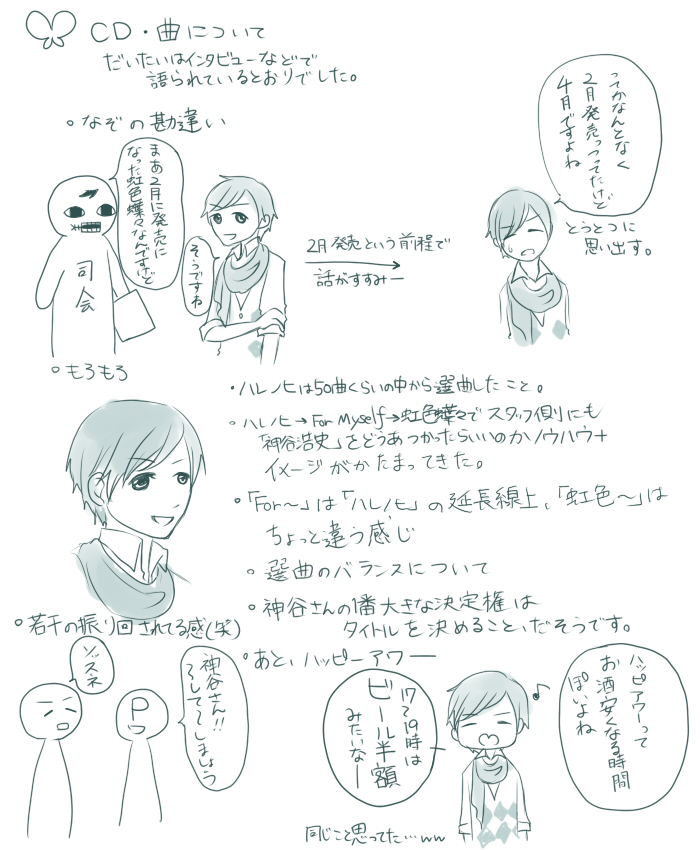 CD・曲について
だいたいはインタビューなどで
語られているとおりでした。
○なぞの勘違い
まあ2月に発売に
なった虹色蝶々なんですけど
司会
そうですね
2月発売という前程で
話がすすみー
ってかなんとなく
2月発売っつってたけど
4月ですよね
とうとつに
思い出す。
○もろもろ
・ハレノヒは50曲くらいの中から選曲したこと。
・ハレノヒ→For Myself→虹色蝶々で スタッフ側にも
「神谷浩史」をどうあつかったらいいのかノウハウ+
イメージがかたまってきた。
○「For〜」は「ハレノヒ」の延長線上、「虹色〜」は
ちょっと違う感じ
○選曲のバランスについて
○神谷さんの1番大きな決定権は
タイトルを決めること、だそうです。
○若干の振り回されてる感(笑)
ソッスネ
P
神谷さん!!
〜して〜しましょう
○あと、ハッピーアワー
17〜19時は
ビール半額
みたいなー
ハッピアワーって
お酒安くなる時間
ぽいよね
同じこと思ってた…ww